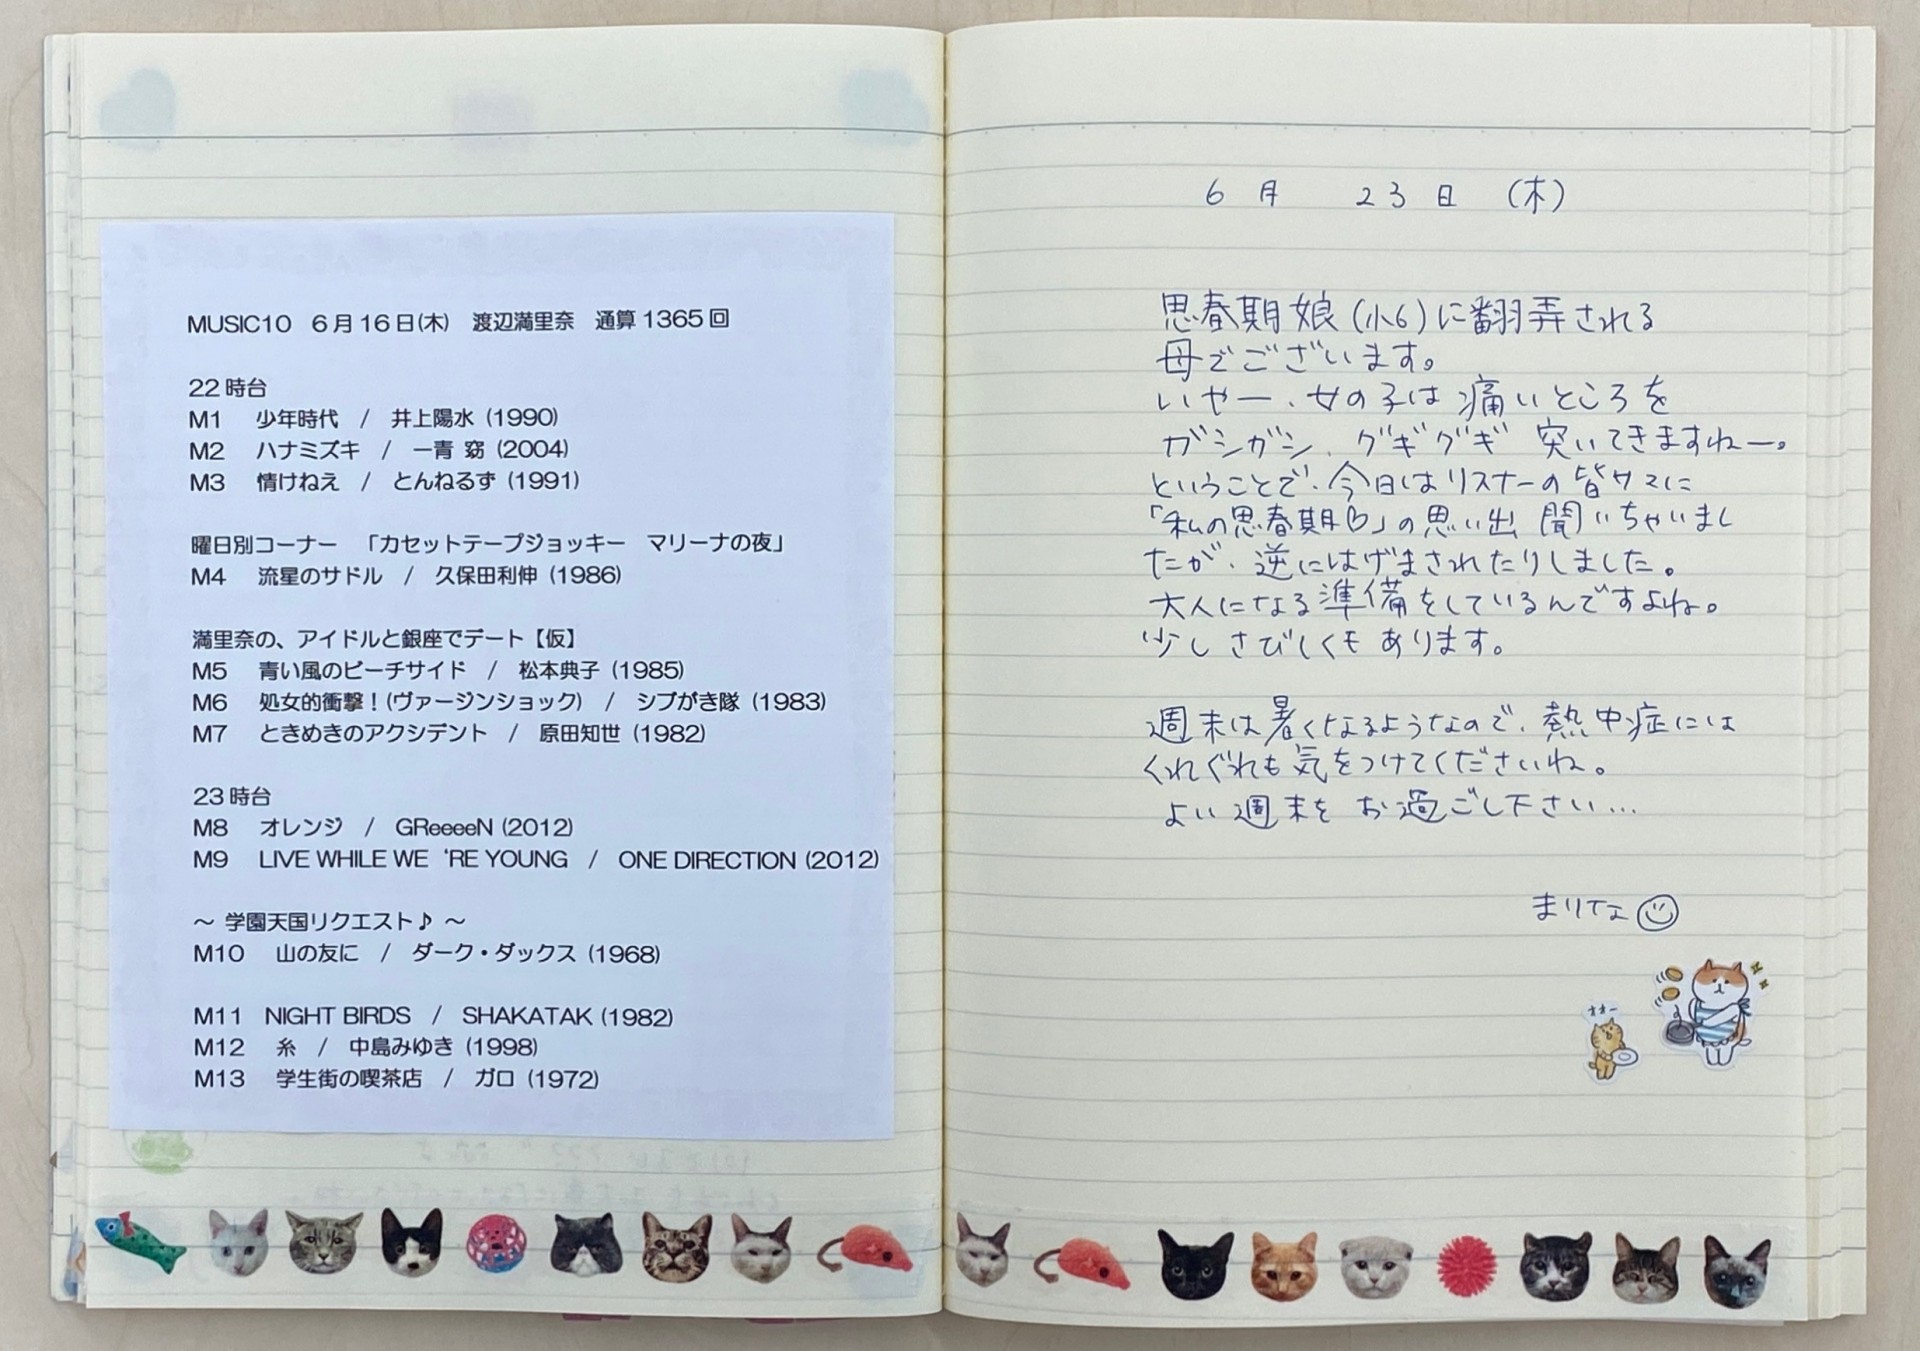 MUSIC10 6月16日(木) 渡辺満里奈 通算1365回
22時台
M1 少年時代 / 井上陽水 (1990)
M2 ハナミズキ / 一青 窈 (2004)
M3 情けねえ / とんねるず (1991)
曜日別コーナー 「カセットテープジョッキー マリーナの夜」
M4 流星のサドル / 久保田利伸 (1986)
満里奈の、アイドルと銀座でデート【仮】
M5 青い風のビーチサイド / 松本典子 (1985)
M6 処女的衝撃！(ヴァージンショック) / シブがき隊 (1983)
M7 ときめきのアクシデント / 原田知世 (1982)
23時台
M8 オレンジ / GReeeeN (2012)
M9 LIVE WHILE WE ‘RE YOUNG / ONE DIRECTION (2012)
～ 学園天国リクエスト♪ ～
M10 山の友に / ダーク・ダックス (1968)
M11 NIGHT BIRDS / SHAKATAK (1982)
M12 糸 / 中島みゆき (1998)
M13 学生街の喫茶店 / ガロ (1972)
6月 23日 (木)
思春期娘(小6)に翻弄される
母でございます。
いやー、女の子は痛いところを
ガシガシ、グギグギ 突いてきますねー。
ということで、今日はリスナーの皆サマに
「私の思春期♡」の思い出 聞いちゃいまし
たが、逆にはげまされたりしました。
大人になる準備をしているんですよね。
少しさびしくもあります。
週末は暑くなるようなので、熱中症には
くれぐれも気をつけてくださいね。
よい週末をお過ごし下さい...
まりな
オオー